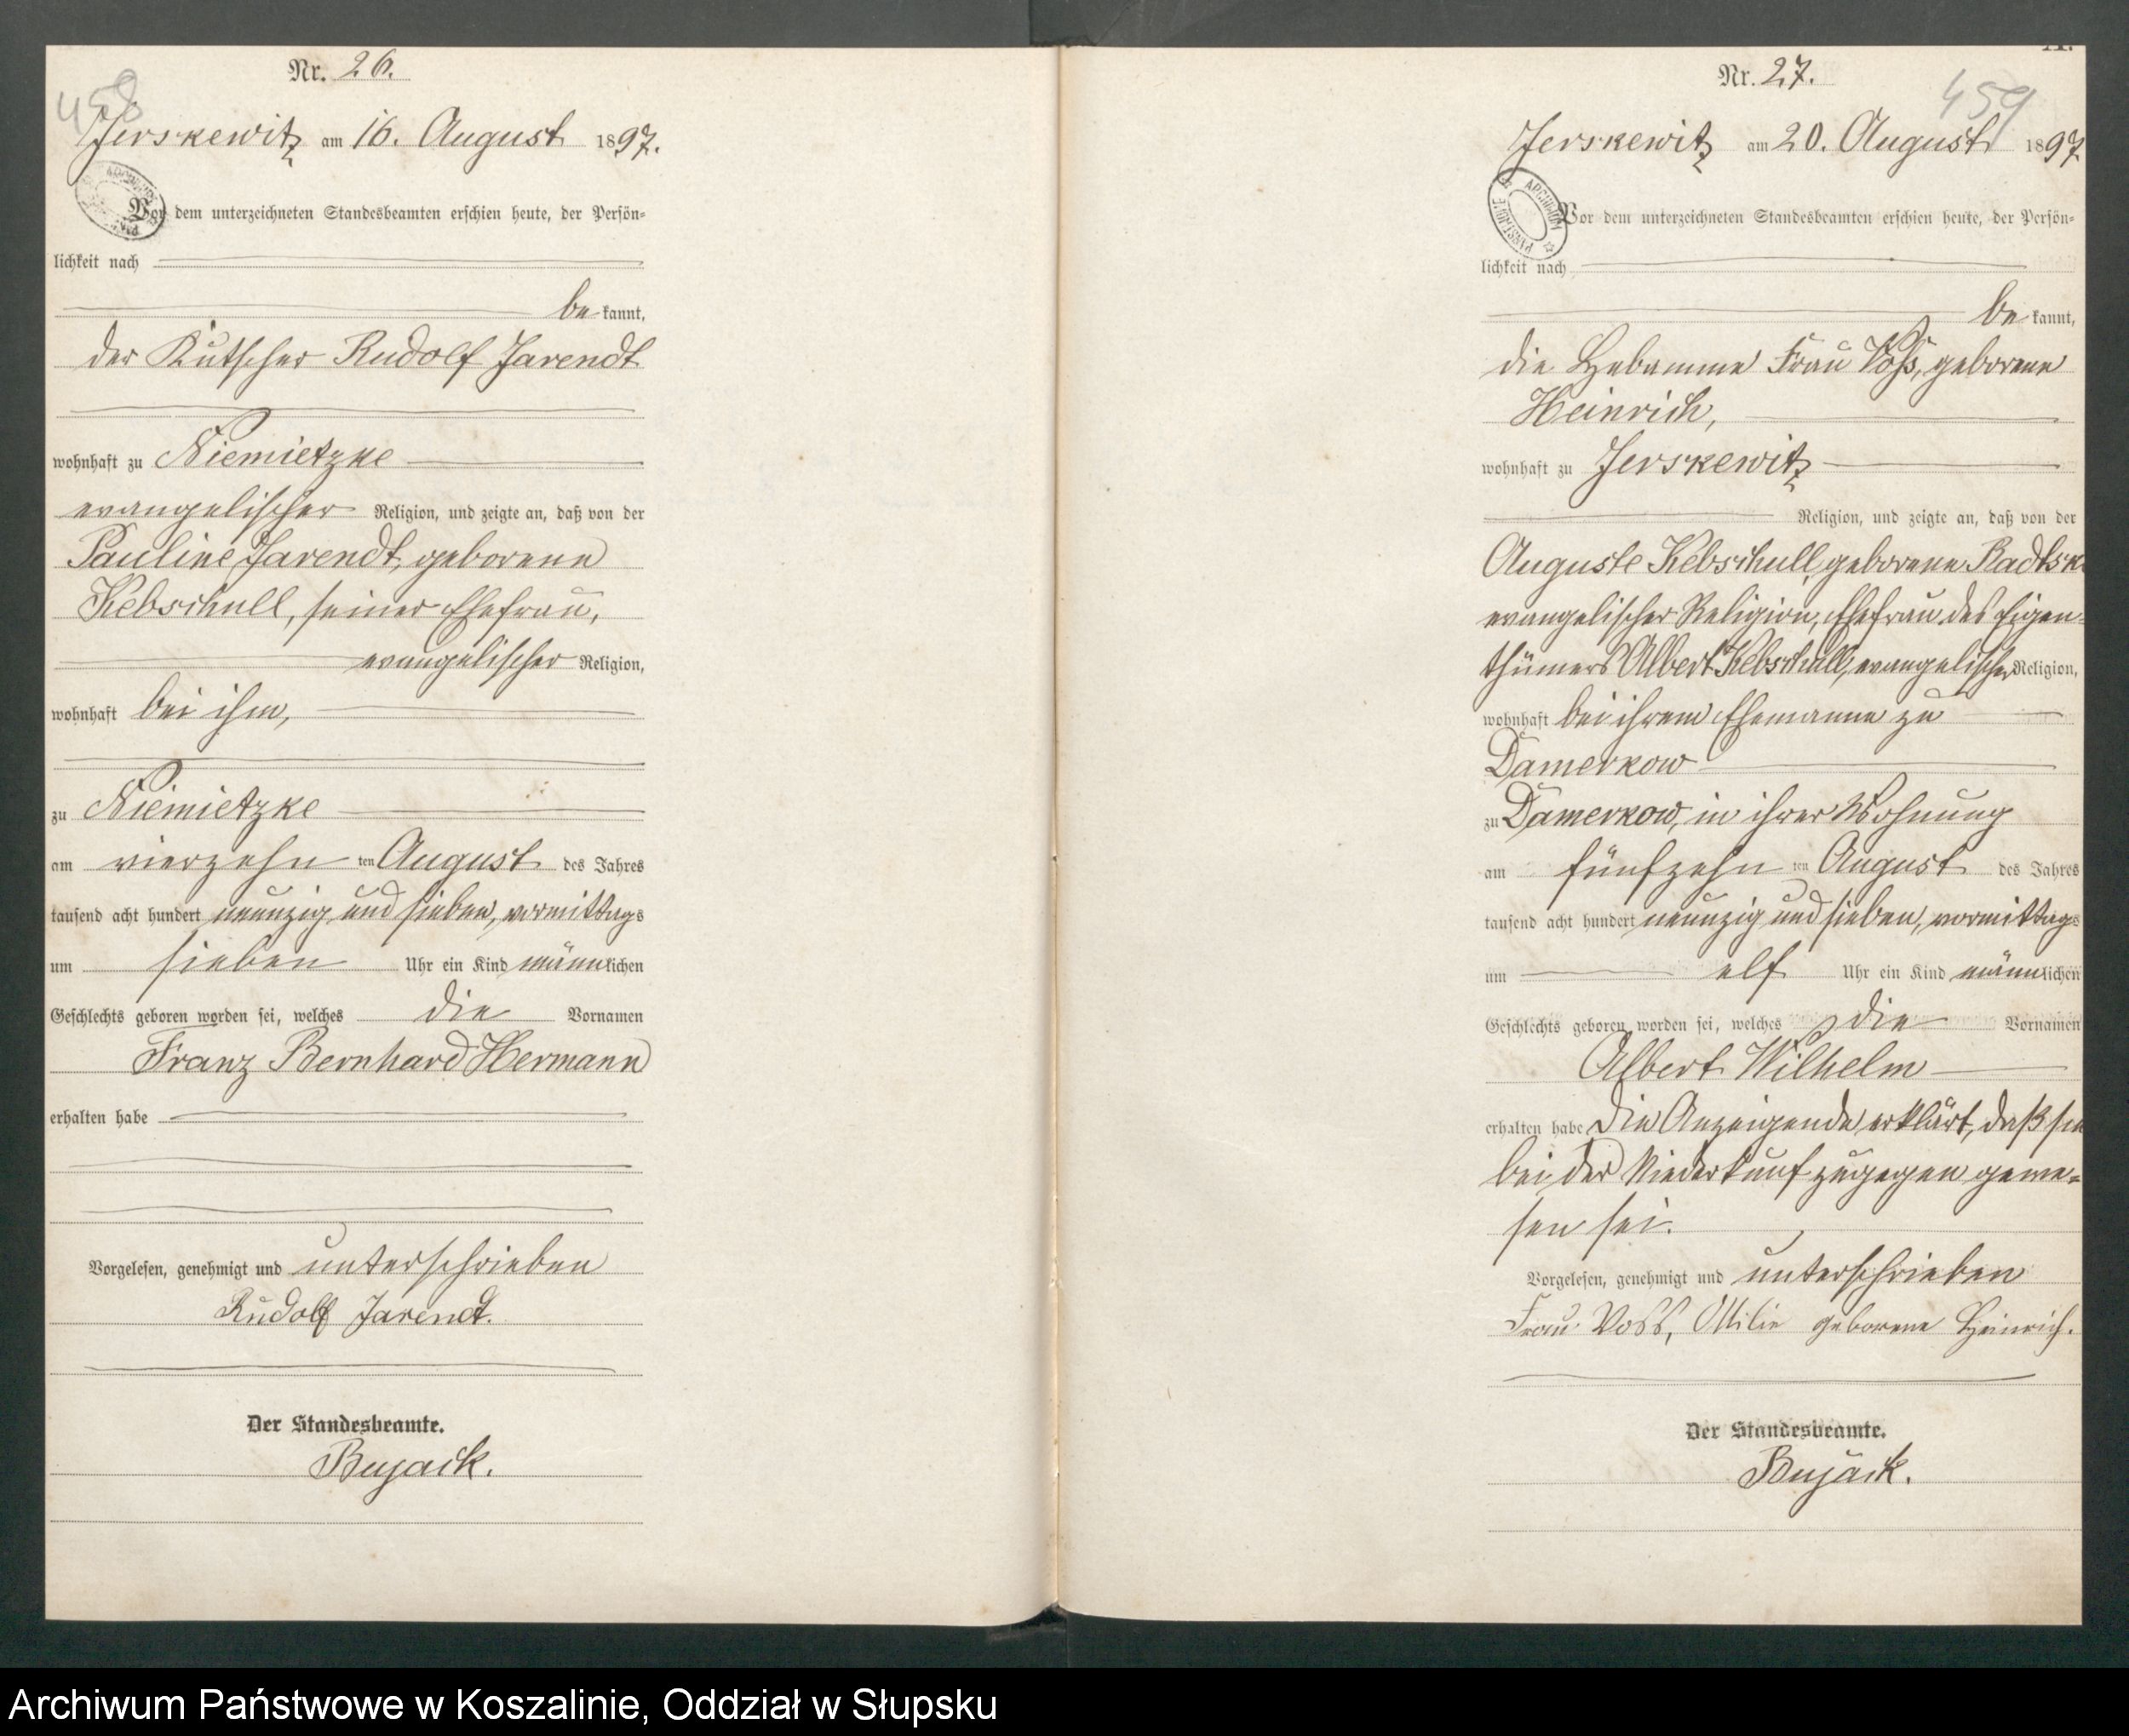 Nr. 26.
458
Jerskewitz am 16. August 1897.
Vor dem unterzeichneten Standesbeamten erschien heute, der Persön-
lichkeit nach
be kannt,
der Kutscher Rudolf Jarendt
wohnhaft zu Niemietzke
evangelischer Religion, und zeigte an, daß von der
Pauline Jarendt, geborene
Kebschull, seiner Ehefrau,
evangelischer Religion,
wohnhaft bei ihm,
zu Niemietzke
am vierzehn ten August des Jahres
tausend acht hundert neunzig und sieben, vormittags
um sieben Uhr ein Kind männlichen
Geschlechts geboren worden sei, welches die Vornamen
Franz Bernhard Hermann
erhalten habe
Vorgelesen, genehmigt und unterschrieben
Rudolf Jarendt.
Der Standesbeamte.
Bujack.
Nr. 27.
459
Jerskewitz am 20. August 1897
Vor dem unterzeichneten Standesbeamten erschien heute, der Persön-
lichkeit nach
be kannt,
die Hebamme Frau Voß, geborene
Heinrich,
wohnhaft zu Jerskewitz
Religion, und zeigte an, daß von der
Auguste Kebschull, geborene
evangelischer Religion, Ehefrau des Eigen-
thümers Albert Kebschull, evangelischer Religion,
wohnhaft bei ihrem Ehemanne zu
Damerkow
zu Damerkow, in ihrer Wohnung
am fünfzehn ten August des Jahres
tausend acht hundert neunzig und sieben, vormittags
um elf Uhr ein Kind männlichen
Geschlechts geboren worden sei, welches die Vornamen
Albert Wilhelm
erhalten habe Die Anzeigende erklärt, daß sie
bei der Niederkunft zugegen gewe-
sen sei.
Vorgelesen, genehmigt und unterschrieben
Frau Voss, Ottilie geborene Heinrich.
Der Standesbeamte.
Bujack.
Archiwum Państwowe w Koszalinie, Oddział w Słupsku